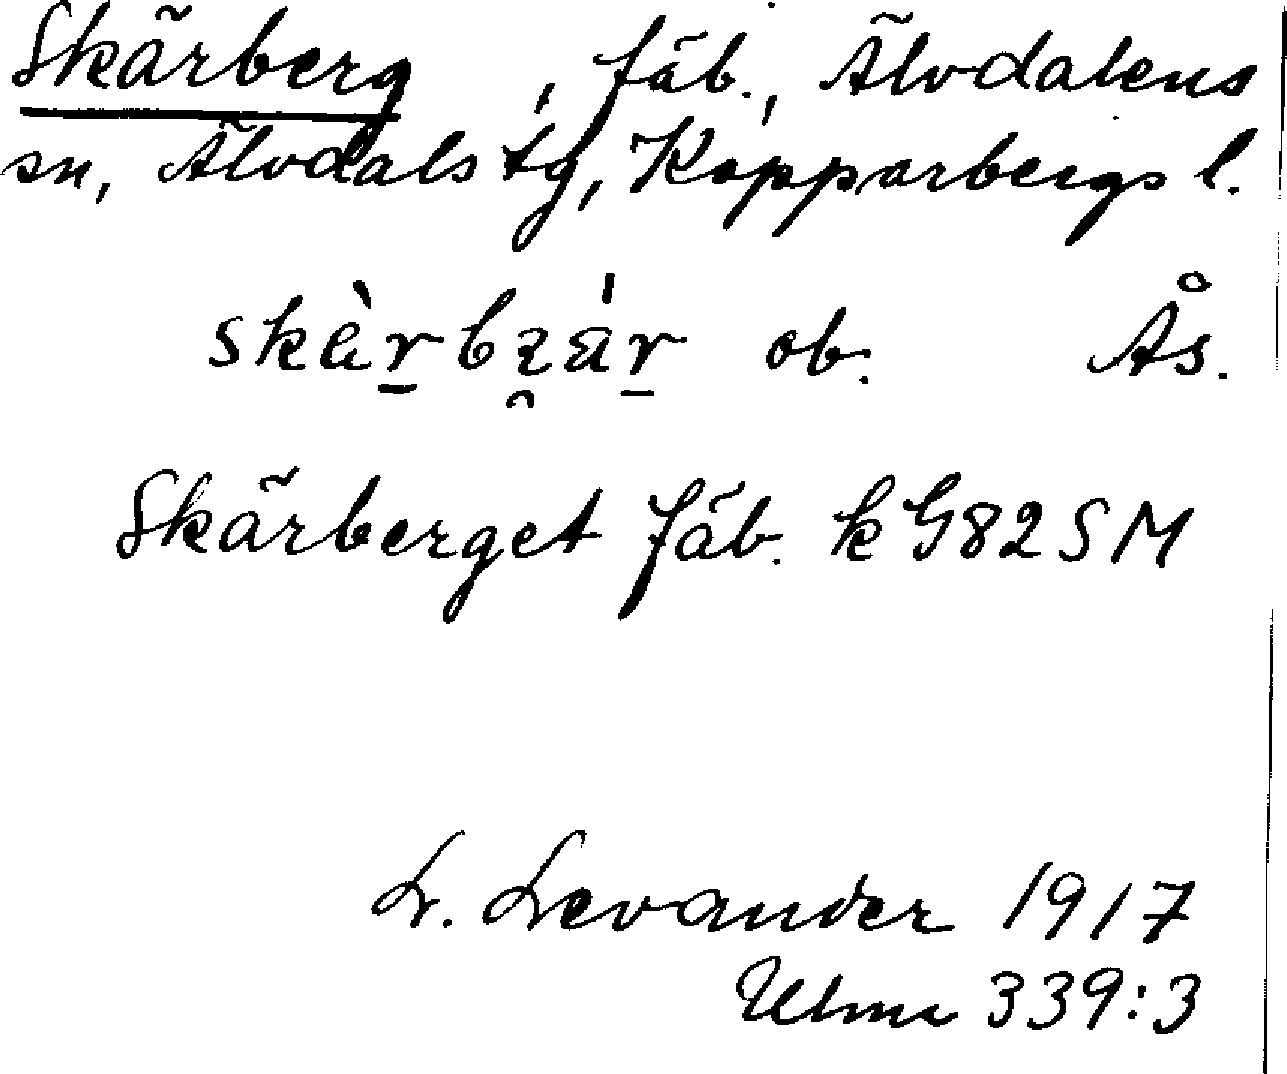 Skärberg, fäb., Älvdalens
sn, Älvdals tg, Kopparbergs l.
ob. Ås.
Skärberget fäb. k G82SM
L. Levander 1917
Ulma 339:3